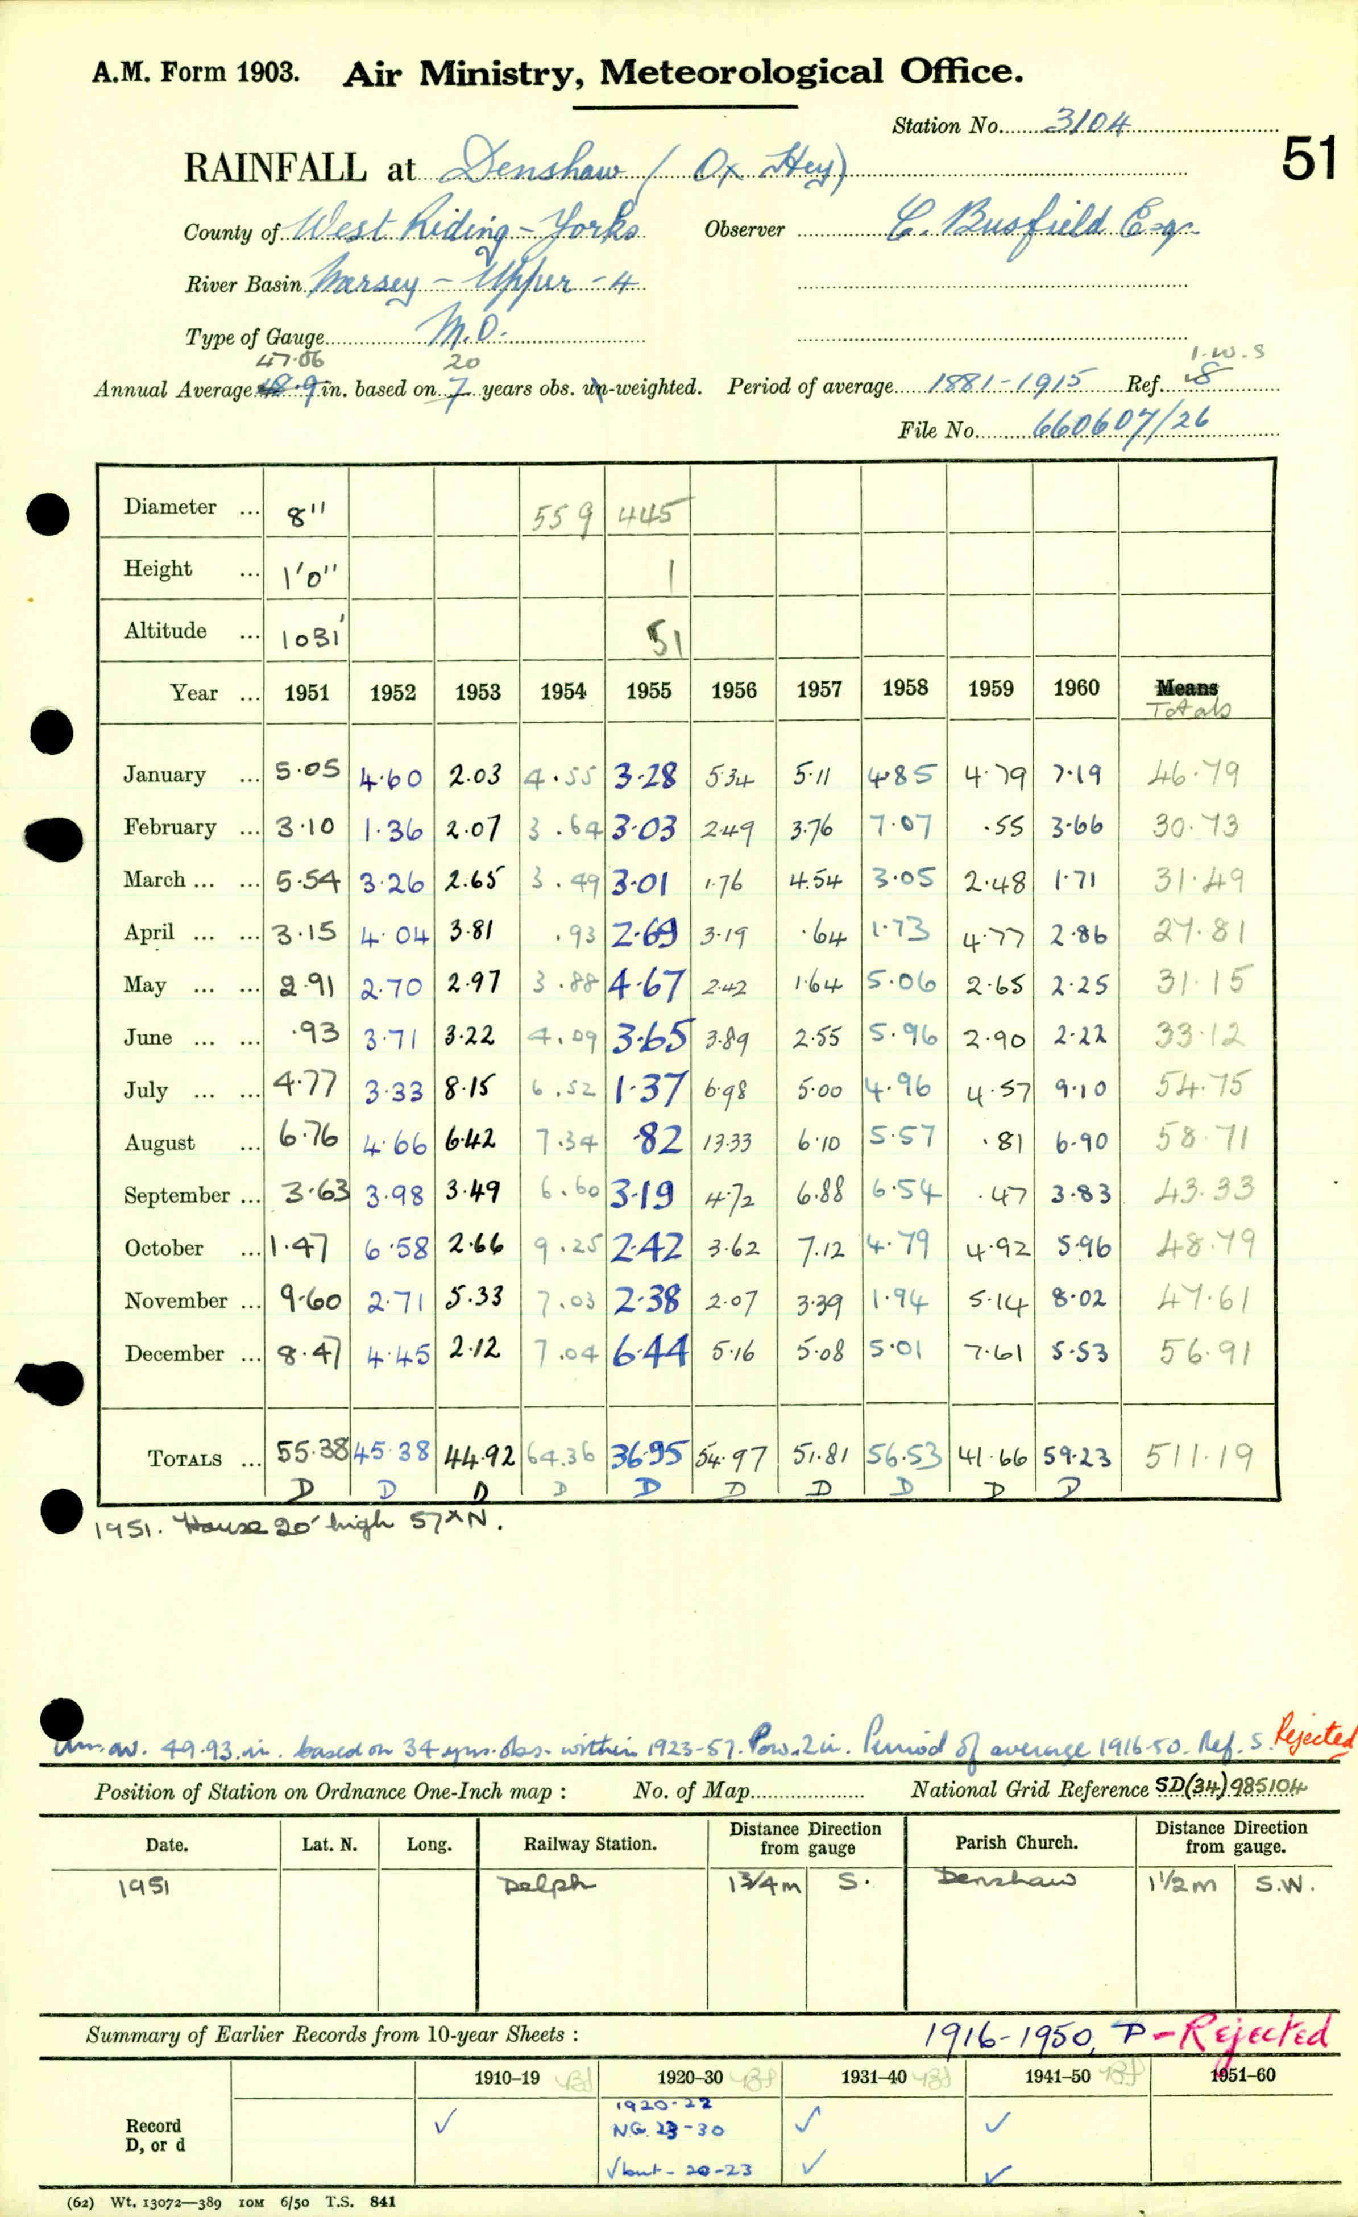 A.M. Form 1903. Air Ministry, Meteorological Office.
Station No. 3104
51
RAINFALL at Denshaw (Ox Hey)
County of West Riding - Yorks Observer C. Busfield Esq.
River Basin Mersey - Upper - 4
Type of Gauge M.O.
47.06 20 I.W.S
Annual Average 48.9 in. based on 7 years obs. un-weighted. Period of average 1881-1915 Ref. S
File No. 660607/26
Diameter ... 8" 559 445
Height ... 1'0" 1
Altitude ... 1031' 51
Year ... 1951 1952 1953 1954 1955 1956 1957 1958 1959 1960 Means
Totals
January ... 5.05 4.60 2.03 4.55 3.28 5.34 5.11 4.85 4.79 7.19 46.79
February ... 3.10 1.36 2.07 3.64 3.03 2.49 3.76 7.07 .55 3.66 30.73
March ... ... 5.54 3.26 2.65 3.49 3.01 1.76 4.54 3.05 2.48 1.71 31.49
April ... ... 3.15 4.04 3.81 .93 2.69 3.19 .64 1.73 4.77 2.86 27.81
May ... ... 2.91 2.70 2.97 3.88 4.67 2.42 1.64 5.06 2.65 2.25 31.15
June ... ... .93 3.71 3.22 4.09 3.65 3.89 2.55 5.96 2.90 2.22 33.12
July ... ... 4.77 3.33 8.15 6.52 1.37 6.98 5.00 4.96 4.57 9.10 54.75
August ... 6.76 4.66 6.42 7.34 .82 13.33 6.10 5.57 .81 6.90 58.71
September ... 3.63 3.98 3.49 6.60 3.19 4.72 6.88 6.54 .47 3.83 43.33
October ... 1.47 6.58 2.66 9.25 2.42 3.62 7.12 4.79 4.92 5.96 48.79
November ... 9.60 2.71 5.33 7.03 2.38 2.07 3.39 1.94 5.14 8.02 47.61
December ... 8.47 4.45 2.12 7.04 6.44 5.16 5.08 5.01 7.61 5.53 56.91
TOTALS ... 55.38 45.38 44.92 64.36 36.95 54.97 51.81 56.53 41.66 59.23 511.19
D D D D D D D D D D
1951. House 20' high 57ˣN.
Ann. av. 49.93 in. based on 34 yrs. obs. within 1923-57. Pow. 2 in. Period of average 1916-50. Ref. S. Rejected
Position of Station on Ordnance One-Inch map : No. of Map National Grid Reference SD(34)985104
Date. Lat. N. Long. Railway Station. Distance from gauge Direction Parish Church. Distance from gauge. Direction
1951 Delph 1 3/4 m S. Denshaw 1 1/2 m S.W.
Summary of Earlier Records from 10-year Sheets : 1916-1950, P - Rejected
1910–19 1920–30 1931–40 1941–50 1951–60
Record D, or d ✓ 1920-22 ✓ ✓
NG. 23-30
✓ but - 20-23 ✓ ✓
(62) Wt. 13072—389 10M 6/50 T.S. 841